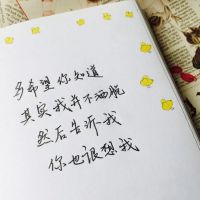 多希望你知道
其实我并不洒脱
然后告诉我
你也很想我